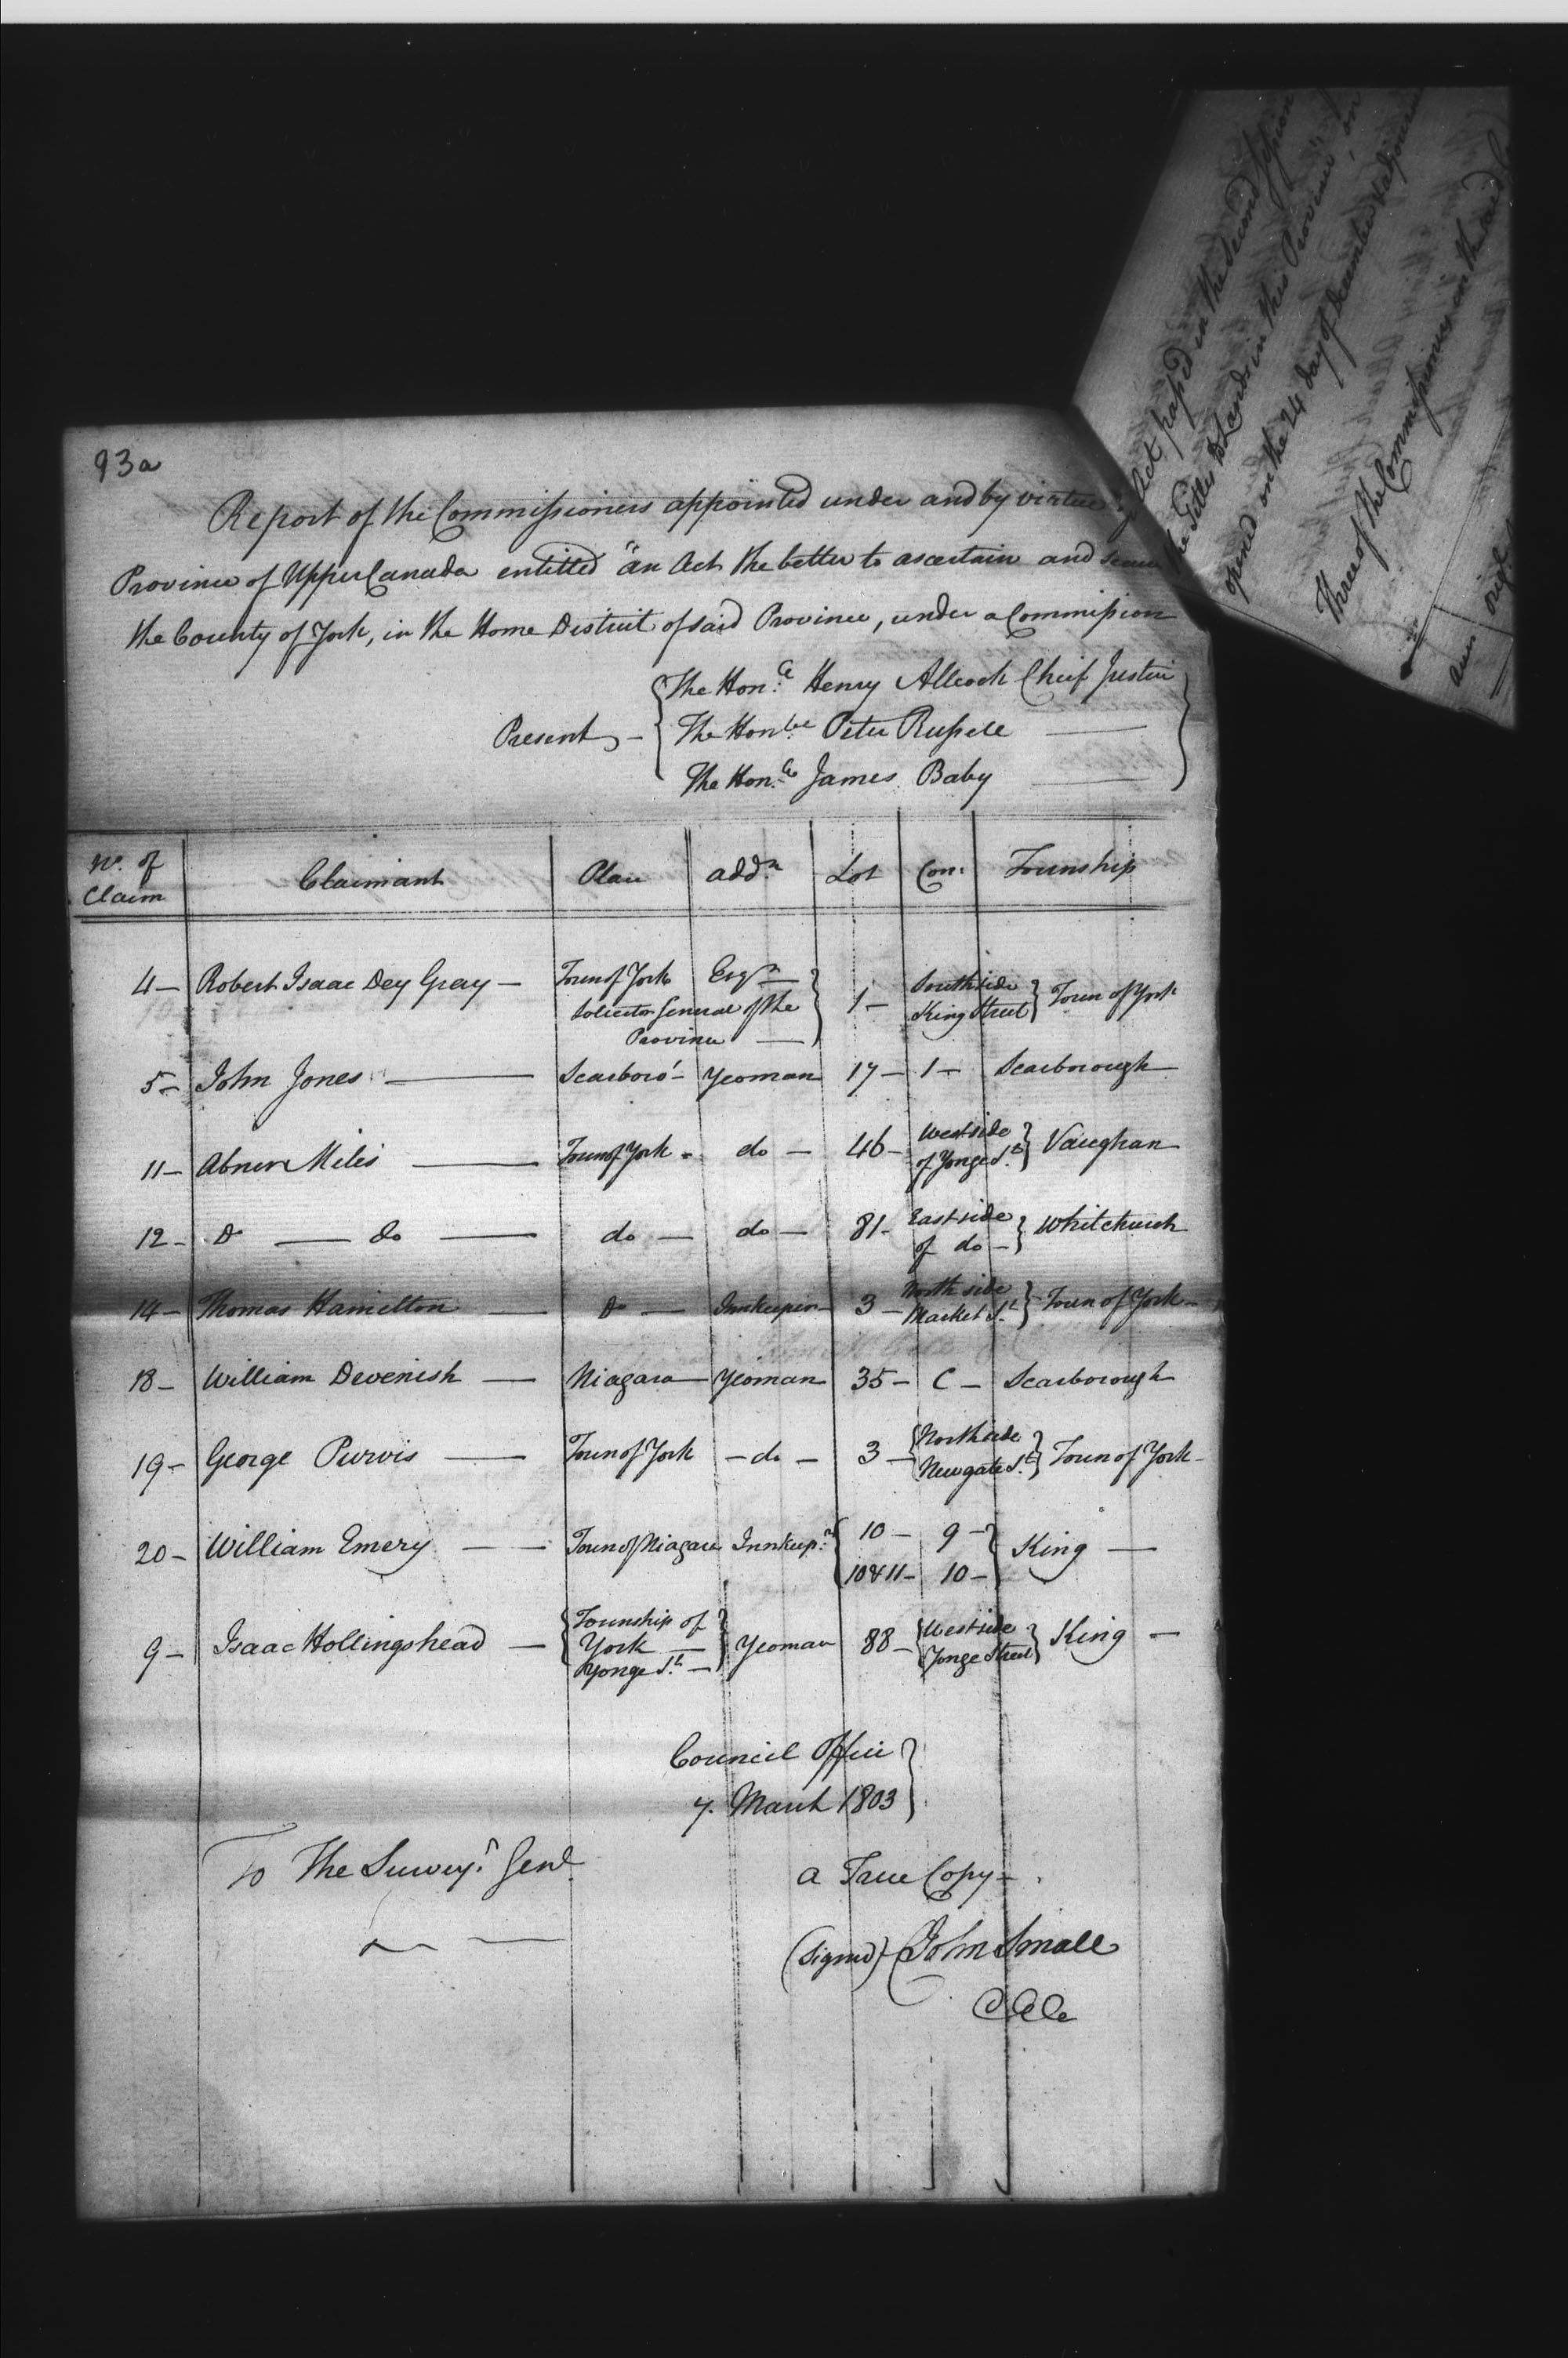 93a
Report of the Commissioners appointed under and by virtue of
Province of Upper Canada entitled "an Act the better to ascertain and secure
the County of York, in the Home District of said Province, under a Commission
Act passed in the Second Session
the Titles to Lands in this Province" on
opened on the 24 day of December & adjourned
Three of the Commissioners on the said
Present - The Hon.le Henry Allcock Chief Justice
The Honble Peter Russell
The Hon.le James Baby
No. of Claim Claimant Place addn. Lot Con: Township
4- Robert Isaac Dey Gray - Town of York Esqr. Solicitor General of the Province 1- South side King Street Town of York
5- John Jones - Scarboro' - Yeoman 17- 1- Scarborough
11- Abner Miles - Town of York - do - 46- West side of Yonge St. Vaughan
12- Do - do - do - do - 81- East side of do - Whitchurch
14- Thomas Hamilton - Do - Innkeeper - 3- North side Market St. Town of York -
18- William Devenish - Niagara - Yeoman 35- C - Scarborough
19- George Purvis - Town of York - do - 3- North side Newgate St. Town of York -
20- William Emery - Town of Niagara Innkeepr. 10- 9- King -
10 & 11- 10-
9- Isaac Hollingshead - Township of York - Yonge St. - Yeoman 88- West side Yonge Street King -
Council Office
7. March 1803
To The Surveyr. Genl.
a True Copy -
(signed) John Small